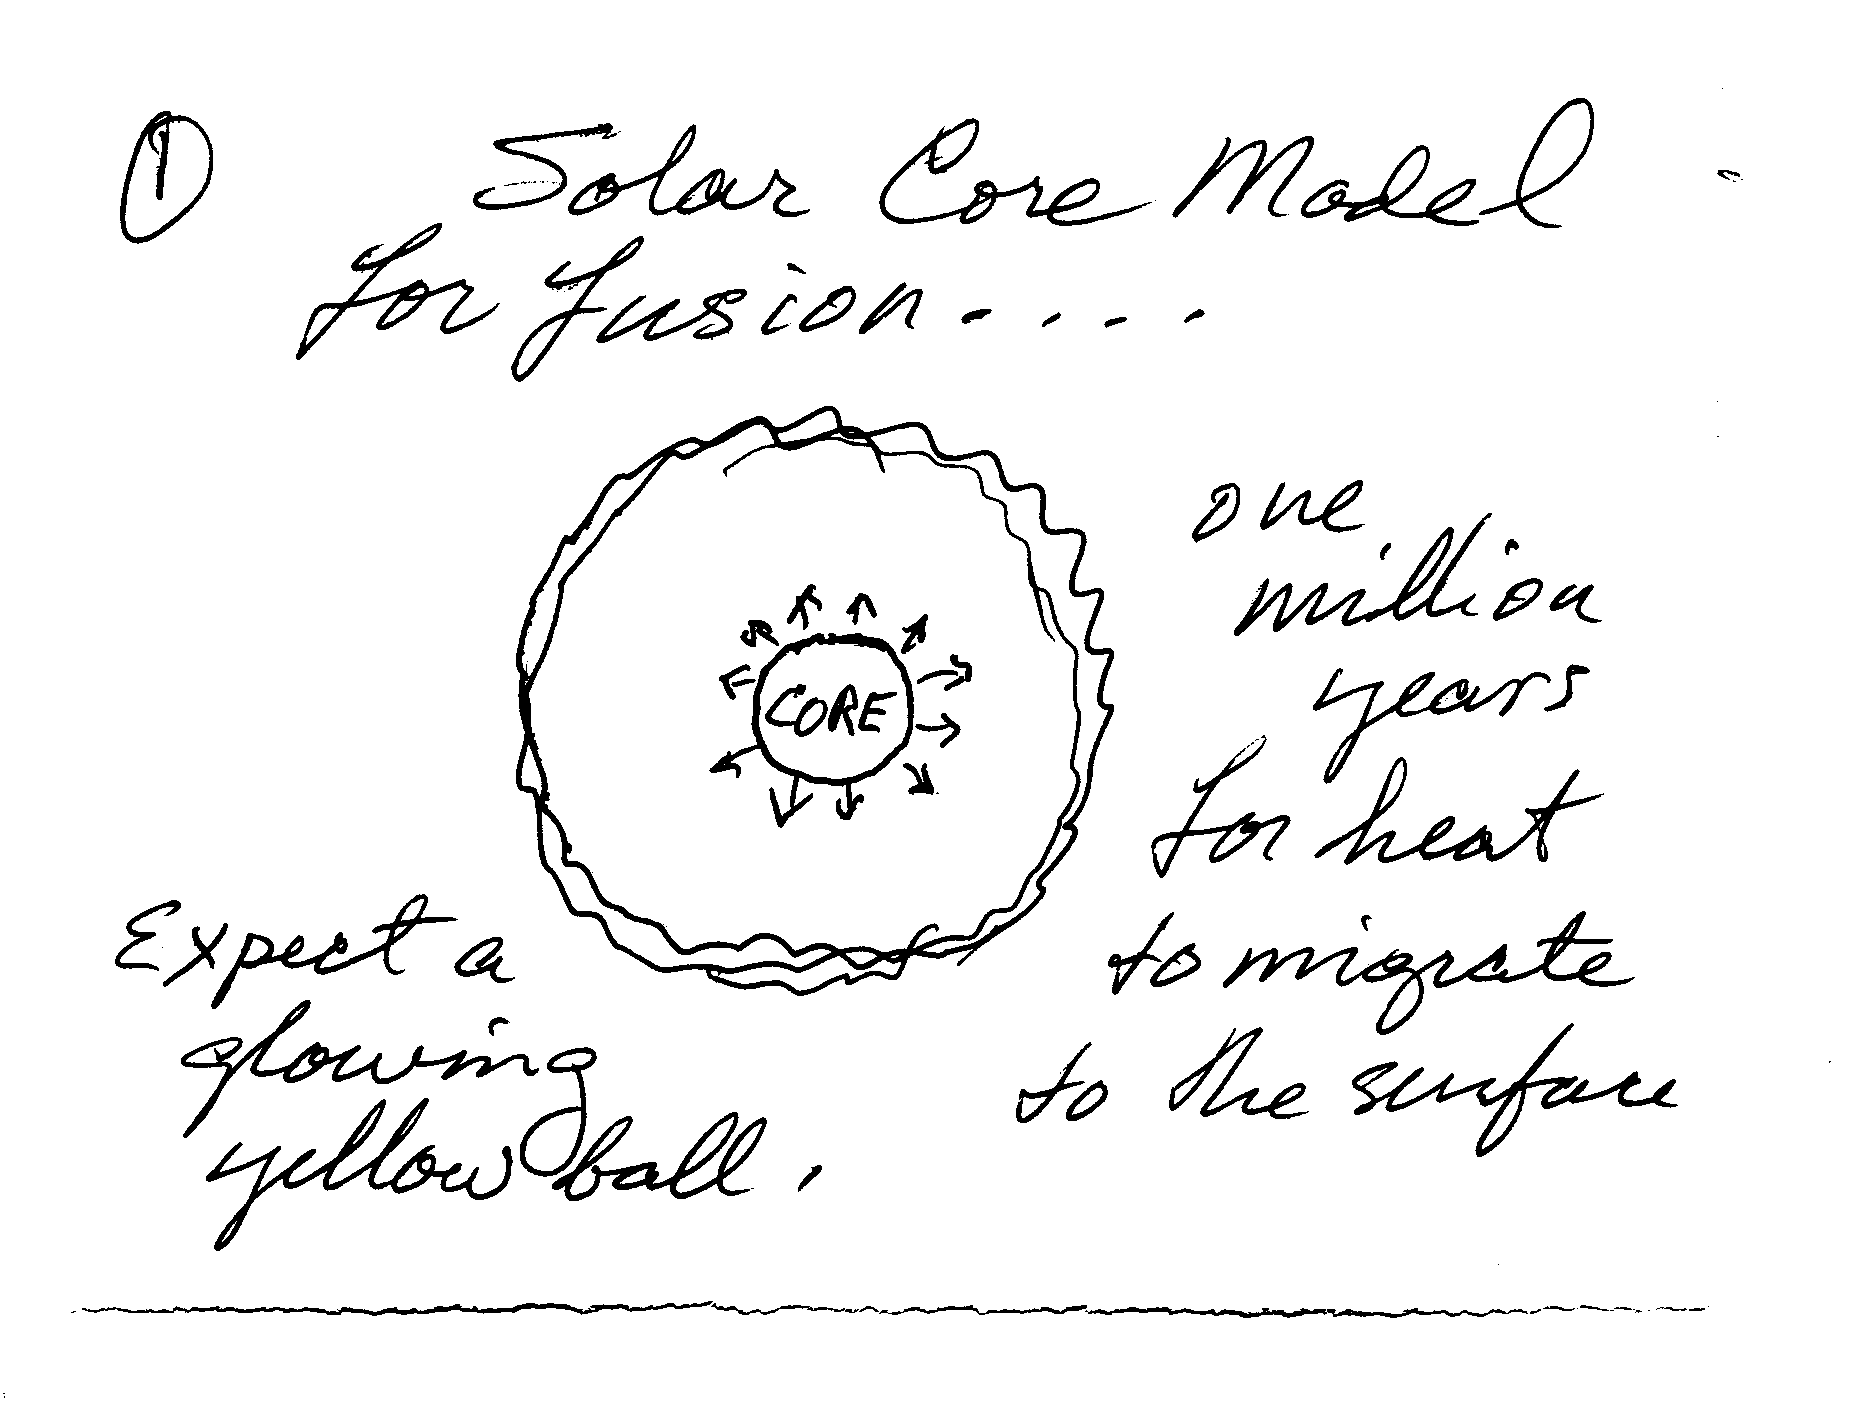 ① Solar Core Model
for fusion....
CORE
one
million
years
for heat
to migrate
to the surface
Expect a
glowing
yellow ball.